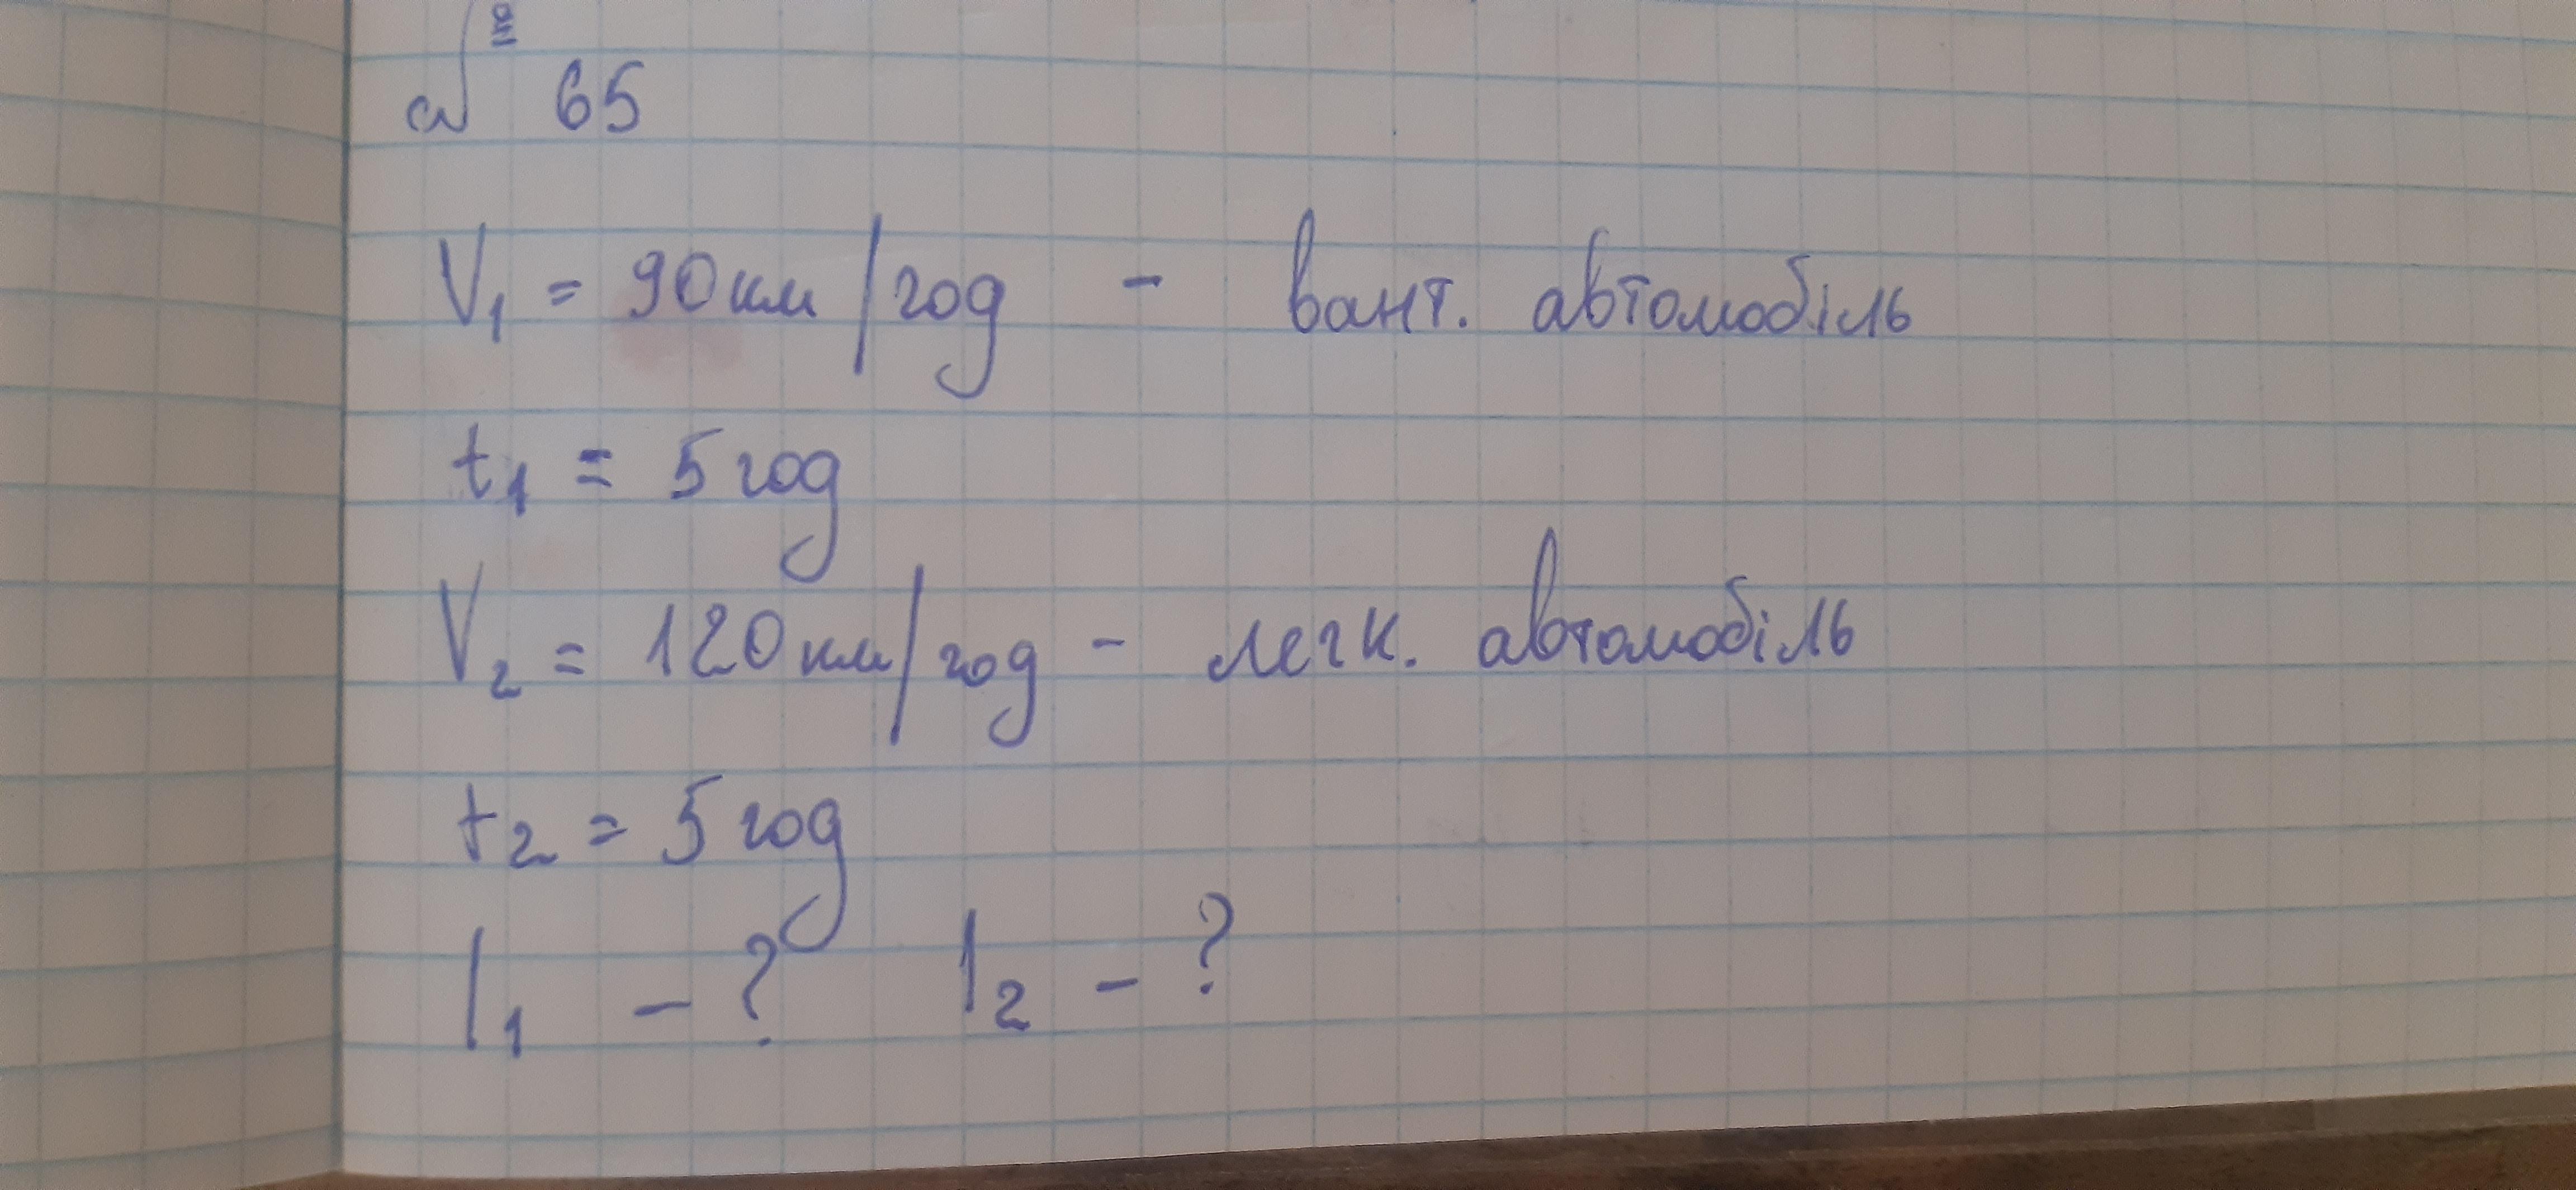 № 65
V₁ = 90 км/год - вант. автомобіль
t₁ = 5 год
V₂ = 120 км/год - легк. автомобіль
t₂ = 5 год
l₁ - ? l₂ - ?